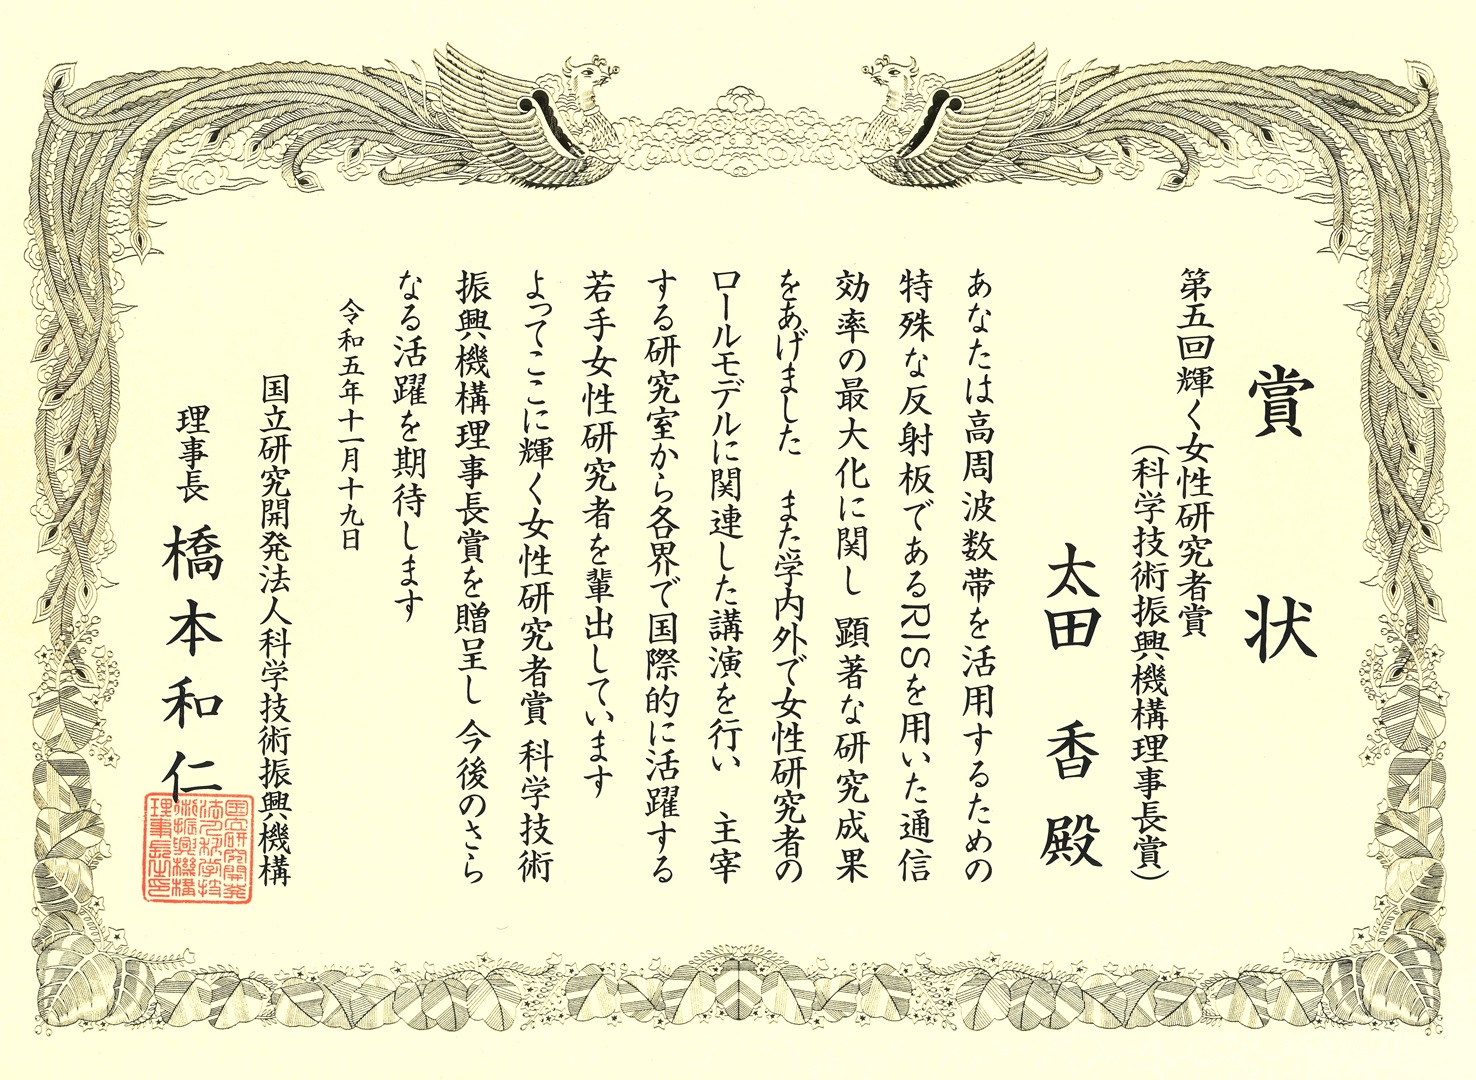 賞状
第五回輝く女性研究者賞
(科学技術振興機構理事長賞)
太田 香 殿
あなたは高周波数帯を活用するための
特殊な反射板であるRISを用いた通信
効率の最大化に関し 顕著な研究成果
をあげました また学内外で女性研究者の
ロールモデルに関連した講演を行い 主宰
する研究室から各界で国際的に活躍する
若手女性研究者を輩出しています
よってここに輝く女性研究者賞 科学技術
振興機構理事長賞を贈呈し 今後のさら
なる活躍を期待します
令和五年十一月十九日
国立研究開発法人科学技術振興機構
理事長 橋本和仁
国立研究開発
法人科学技
術振興機構
理事長之印